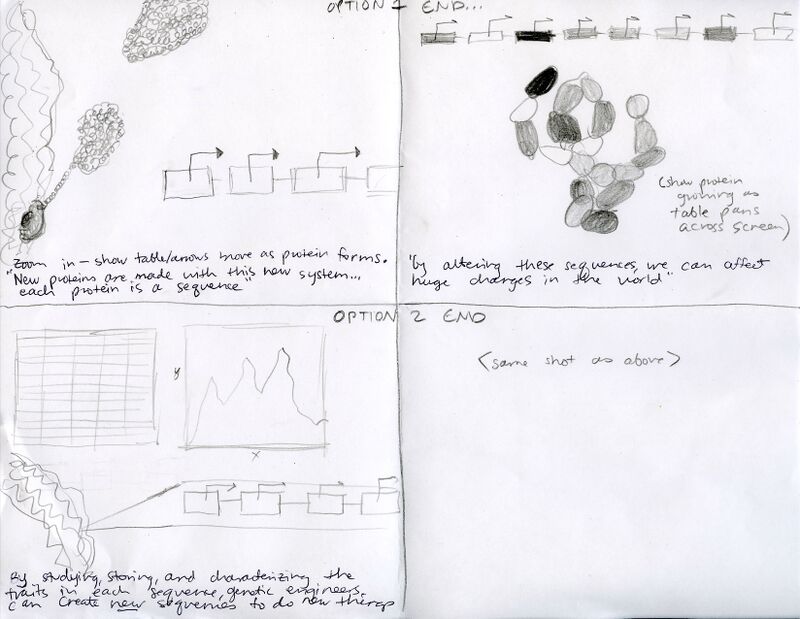 OPTION 1 END...
Zoom in - show table/arrows move as protein forms.
"New proteins are made with this new system...
each protein is a sequence"
(show protein
growing as
table pans
across screen)
"by altering these sequences, we can affect
huge changes in the world"
OPTION 2 END
y
x
<same shot as above>
By studying, storing, and characterizing the
traits in each sequence, genetic engineers
can create new sequences to do new things